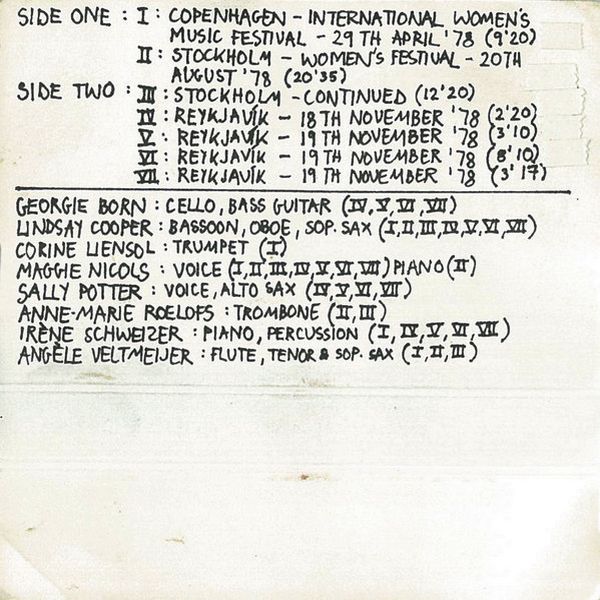 SIDE ONE : I : COPENHAGEN - INTERNATIONAL WOMEN'S
MUSIC FESTIVAL - 29TH APRIL '78 (9'20)
II : STOCKHOLM - WOMEN'S FESTIVAL - 20TH
AUGUST '78 (20'35)
SIDE TWO : III : STOCKHOLM - CONTINUED (12'20)
IV : REYKJAVÍK - 18TH NOVEMBER '78 (2'20)
V : REYKJAVÍK - 19TH NOVEMBER '78 (3'10)
VI : REYKJAVÍK - 19TH NOVEMBER '78 (8'10)
VII : REYKJAVÍK - 19TH NOVEMBER '78 (3'17)
GEORGIE BORN : CELLO, BASS GUITAR (IV, V, VI, VII)
LINDSAY COOPER : BASSOON, OBOE, SOP. SAX (I, II, III, IV, V, VI, VII)
CORINE LIENSOL : TRUMPET (I)
MAGGIE NICOLS : VOICE (I, II, III, IV, V, VI, VII) PIANO (II)
SALLY POTTER : VOICE, ALTO SAX (IV, V, VI, VII)
ANNE-MARIE ROELOFS : TROMBONE (II, III)
IRÈNE SCHWEIZER : PIANO, PERCUSSION (I, IV, V, VI, VII)
ANGÈLE VELTMEIJER : FLUTE, TENOR & SOP. SAX (I, II, III)